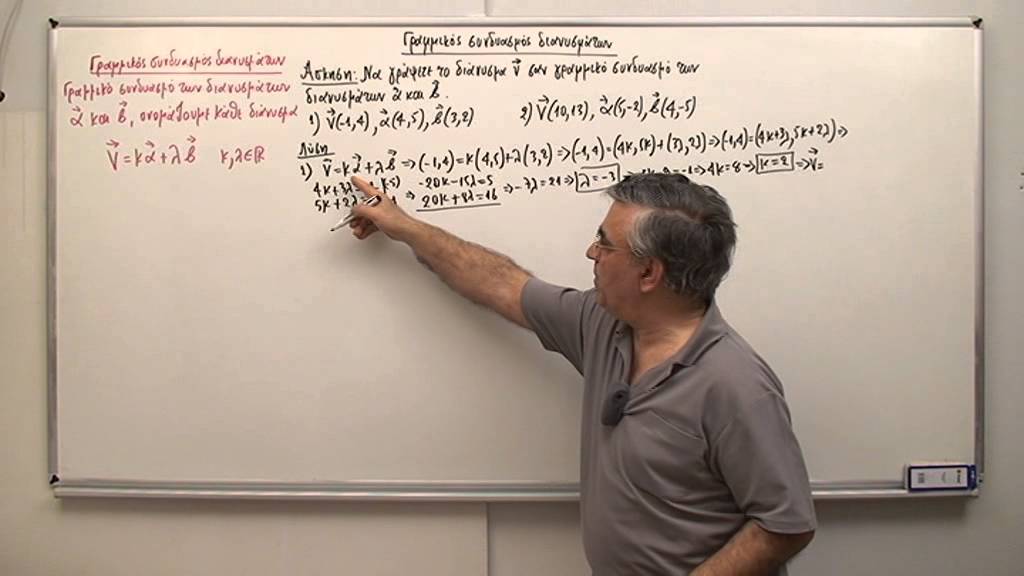 Γραμμικός συνδυασμός διανυσμάτων
Γραμμικός συνδυασμός διανυσμάτων
Γραμμικό συνδυασμό των διανυσμάτων
α⃗ και β⃗, ονομάζουμε κάθε διάνυσμα
v⃗=κα⃗+λβ⃗ κ,λ∈ℝ
Άσκηση: Να γράψετε το διάνυσμα v⃗ σαν γραμμικό συνδυασμό των
διανυσμάτων α⃗ και β⃗.
1) v⃗(-1,4), α⃗(4,5), β⃗(3,2) 2) v⃗(10,13), α⃗(5,-2), β⃗(4,-5)
Λύση
1) v⃗=κα⃗+λβ⃗ ⇒ (-1,4)=κ(4,5)+λ(3,2) ⇒ (-1,4)=(4κ,5κ)+(3λ,2λ) ⇒ (-1,4)=(4κ+3λ,5κ+2λ) ⇒
4κ+3λ -5) -20κ-15λ=5
5κ+2λ ⇒ 20κ+8λ=16 ⇒ -7λ=21 ⇒ λ=-3 ⇒4κ=8 ⇒ κ=2 ⇒ v⃗=